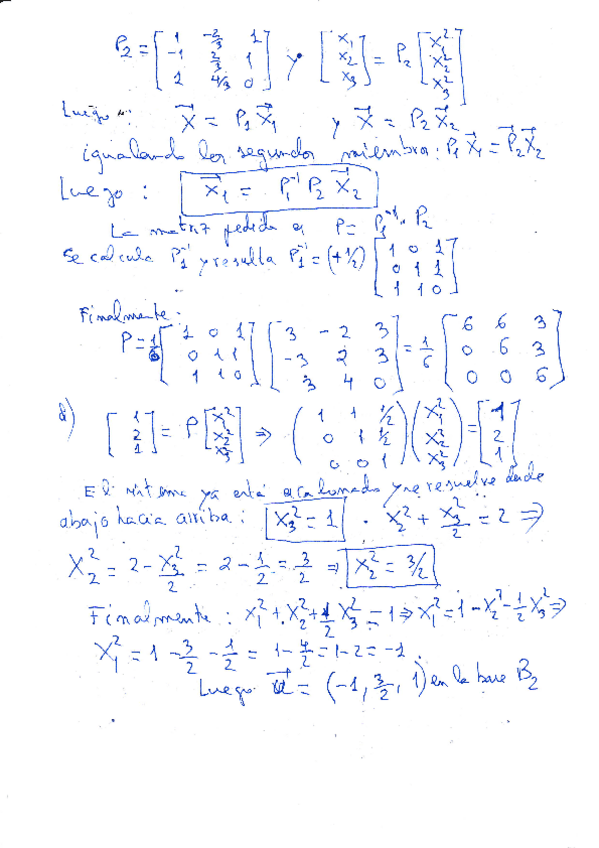 P₂ = [ 1 -2/3 1 ; -1 2/3 1 ; 1 4/3 0 ] y [ x₁ ; x₂ ; x₃ ] = P₂ [ x₁² ; x₂² ; x₃² ]
Luego: X⃗ = P₁ X⃗₁ y X⃗ = P₂ X⃗₂
igualando los segundos miembros: P₁ X⃗₁ = P₂ X⃗₂
Luego : X⃗₁ = P₁⁻¹ P₂ X⃗₂
La matriz pedida es P = P₁⁻¹ · P₂
Se calcula P₁⁻¹ y resulta P₁⁻¹ = (+1/2) [ 1 0 1 ; 0 1 1 ; 1 1 0 ]
Finalmente:
P = 1/6 [ 1 0 1 ; 0 1 1 ; 1 1 0 ] [ 3 -2 3 ; -3 2 3 ; 3 4 0 ] = 1/6 [ 6 6 3 ; 0 6 3 ; 0 0 6 ]
[ 1 ; 2 ; 1 ] = P [ x₁² ; x₂² ; x₃² ] ⇒ ( 1 1 1/2 ; 0 1 1/2 ; 0 0 1 ) ( x₁² ; x₂² ; x₃² ) = [ 1 ; 2 ; 1 ]
El sistema ya está escalonado y se resuelve desde
abajo hacia arriba: x₃² = 1 . x₂² + x₃²/2 = 2 ⇒
x₂² = 2 - x₃²/2 = 2 - 1/2 = 3/2 ⇒ x₂² = 3/2
Finalmente : x₁² + x₂² + 1/2 x₃² = 1 ⇒ x₁² = 1 - x₂² - 1/2 x₃² ⇒
x₁² = 1 - 3/2 - 1/2 = 1 - 4/2 = 1 - 2 = -1
Luego u⃗ = (-1, 3/2, 1) en la base B₂